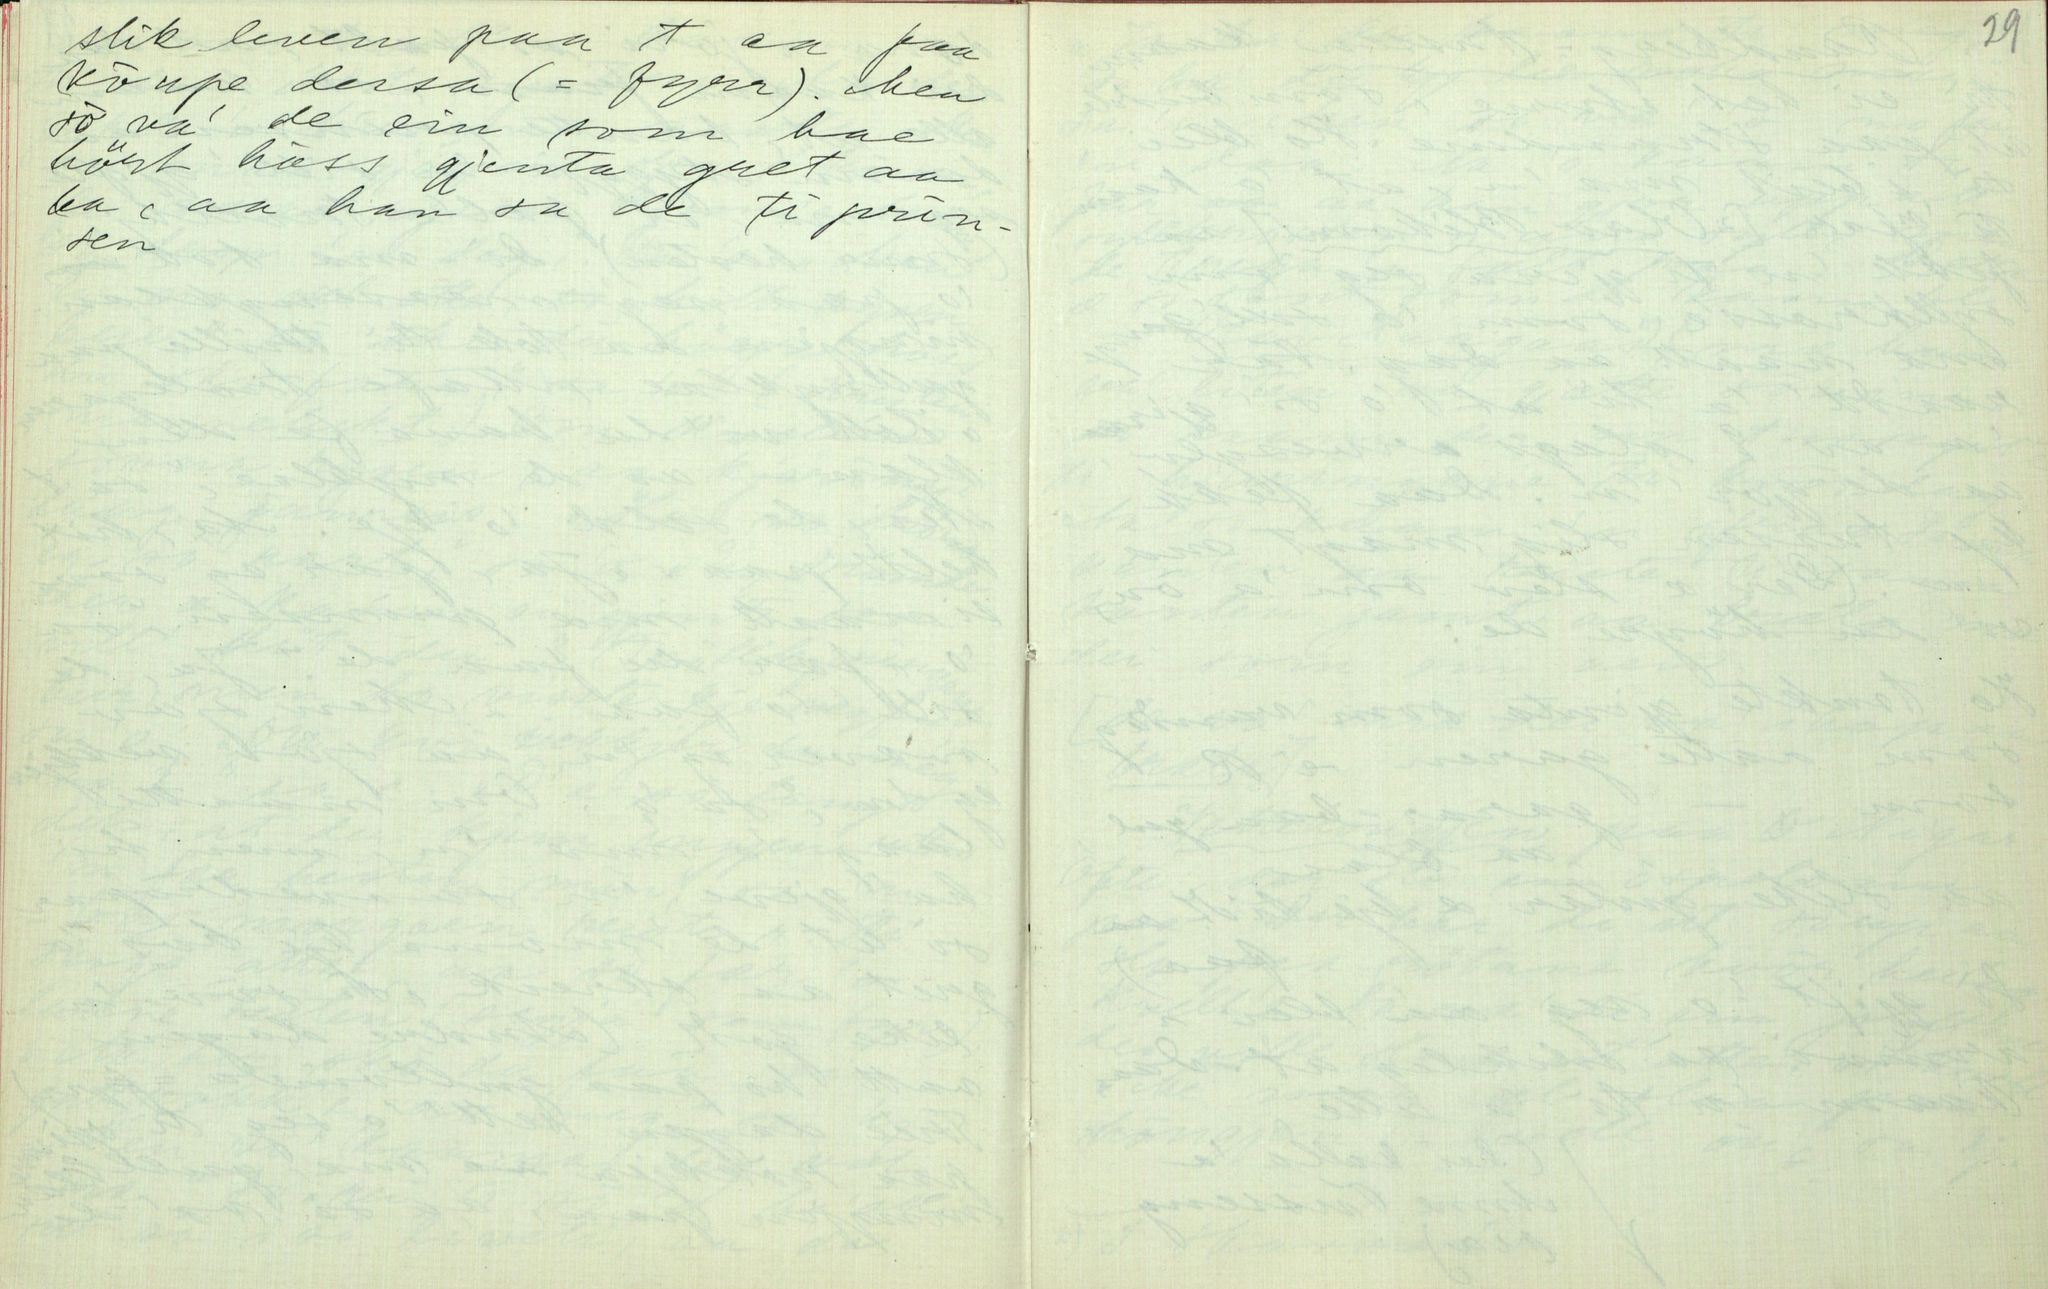 slik leven paa t aa faa
köupe dersa (= fyrr). Men
so va' de ein som hae
höyrt håss gjenta gret aa
ba, aa han sa de ti prin-
sen
29